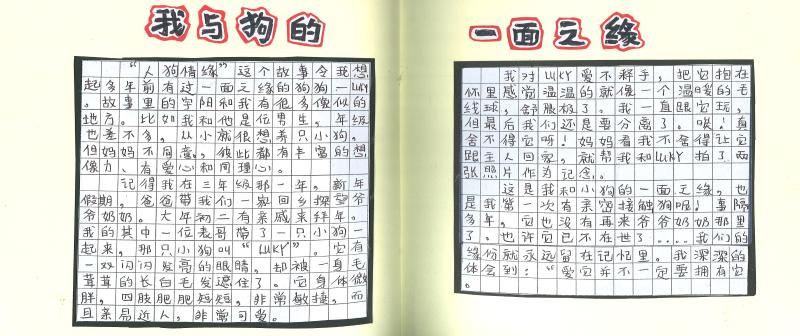 我与狗的
"人狗情缘"这个故事令我想
起多年前有过一面之缘的狗狗—LUKY
。故事里的宇阳和我有很多像似的
地方。比如我和他是位男生,年级
也差不多。从小就很想养只小狗。
但妈妈不同意,彼此都有丰富的想
像力、有爱心和同理心。
记得我在三年级那一年,新年
假期,爸爸带我们一家回乡探望爷
爷奶奶。大年初二有亲戚来拜年。
我的其中一位表哥带了一只小狗一
起来,那只小狗叫"LUKY"。它有
一双闪闪发亮的眼睛,却被一身毛
茸茸的长白毛发遮住了。它身体微
胖,四肢肥肥短短,非常敏捷,而
且亲易近人,非常可爱。
一面之缘
我对LUKY爱不释手,把它抱在
怀里感觉温温的就像一个温暖的毛
线球,舒服极了。我一直跟它玩,
但最后我们还是要分离了。唉!真
舍不得它呀!妈妈看我不舍得让它
跟主人回家,就帮我和LUKY拍了两
张照片作为记念。
这是我和小狗的一面之缘,也
是我第一次有亲密接触狗呢!事隔
多年,它也没有再来爷爷奶奶那里
了。也许它已不在世了....我们的
缘份就永远留在记忆里。我深深的
体会到:"爱它并不一定要拥有它
。